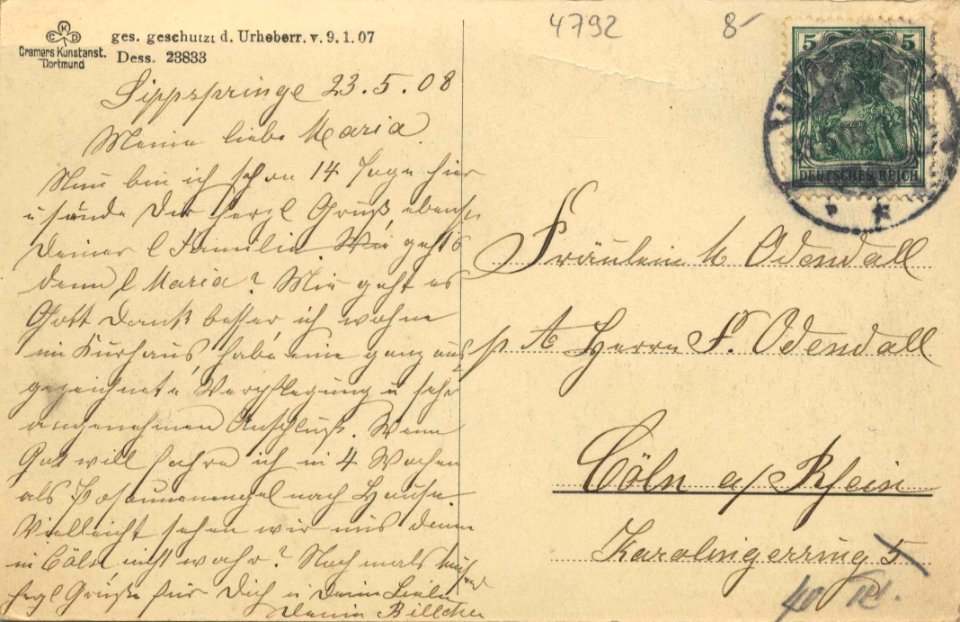 4792
8-
KKD
Cramers Kunstanst.
Dortmund
ges. geschützt d. Urheberr. v. 9.1.07
Dess. 23833
5 5
DEUTSCHES REICH
Lippspringe 23.5.08
Meine liebe Maria
Nun bin ich schon 14 Tage hier
u sende Dir herzl Gruß ebenso
Deiner l Familie. Wie geht's
denn l Maria? Mir geht es
Gott Dank besser, ich wohne
im Kurhaus, habe eine ganz aus
gezeichnete Verpflegung u sehr
angenehmen Anschluß. Wenn
Gott will fahre ich in 4 Wochen
als Posaunenengel nach Hause
Vielleicht sehen wir uns dann
in Cöln, nicht wahr? Nochmals
herzl Grüße für Dich u Deine Lieben
Deine Billchen
Fräulein M Odendall
p A Herrn F. Odendall
Cöln a/ Rhein
Karolingerring 5
40 III.